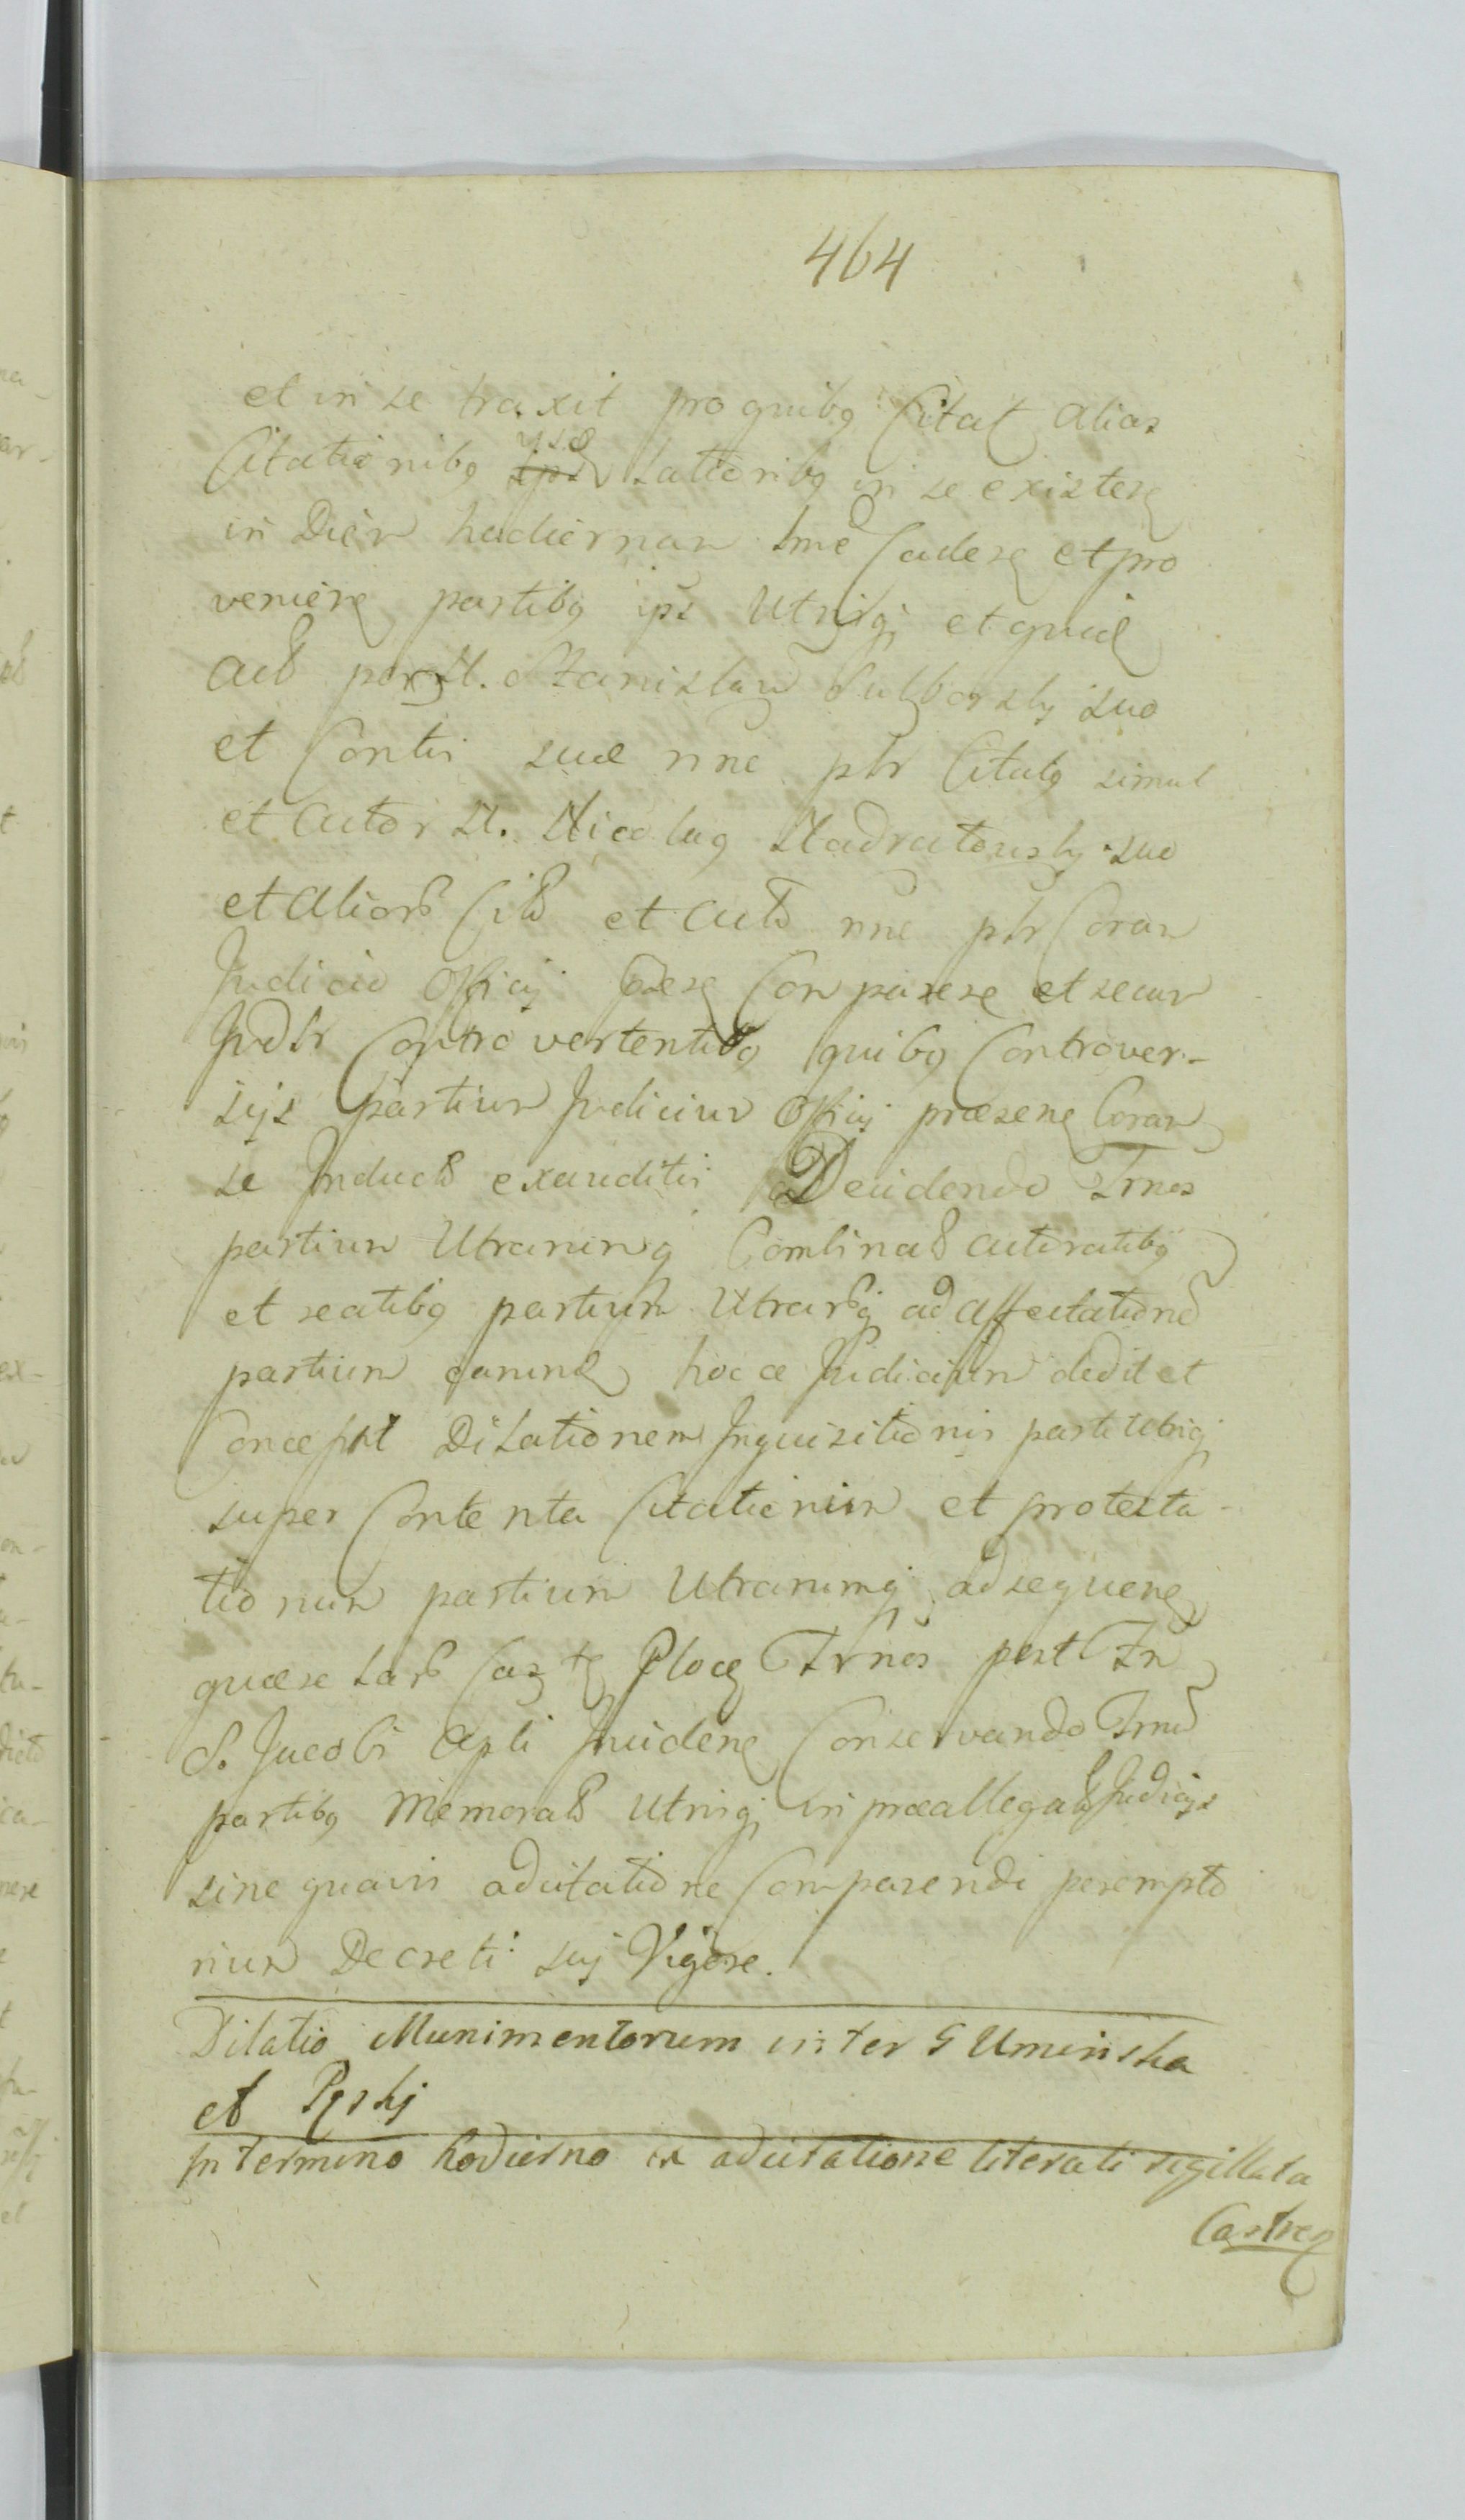 464
et in se traxit pro quibq Citat alias
Citationibq ysd latioribq in se existen
in Diem hodiernam tme Caden et pro
venien partibq ips Utrisqj et quid
act per N. Stanislau Sulborsky suo
et Contis suæ nne ptr Citatq simul
et actor N. Nicolaq Nadratowsky suo
et alior Cit et act nne ptr Coram
Judicio Officij Comparere et secum
Judtr Controvertentibq quibq Controver-
sijs partium Judicium Officij præsene Coram
se Induct exauditis Decidendo Trnos
partium Utrarumq Combinat actoratibq
et reatibq partium Utrarqj ad affectatione
partium earund hocce Judicium dedit et
Concessit Dilationem Inquisitionis parti Utriqj
super Contenta Citationum et protesta-
tionum partium Utrarumqj ad sequene
quæselar Cast Ploce Trnos post Fn
S. Jacobi Apli Inciden Conservando Trnu
partibq Memorat Utrisqj in præallegat Judicijs
sine quavis adcitatione Comparendi perempto
rium Decreti sui Vigore.
Dilatio Munimentorum inter G Uminska
et
In termino hodierno ex adcitatione literali sigillata
Castren